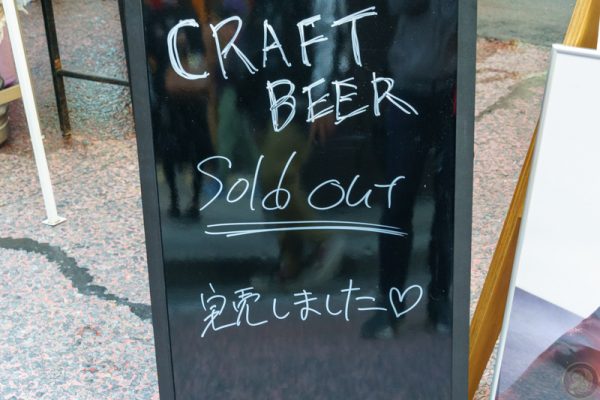 CRAFT
BEER
Sold out
完売しました♡